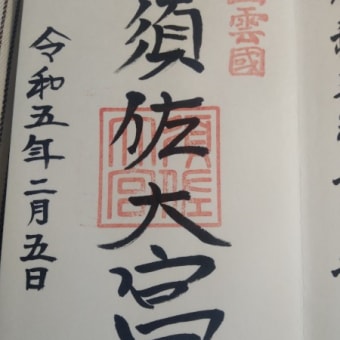 出雲國
須佐大宮
須佐
大宮
令和五年二月五日